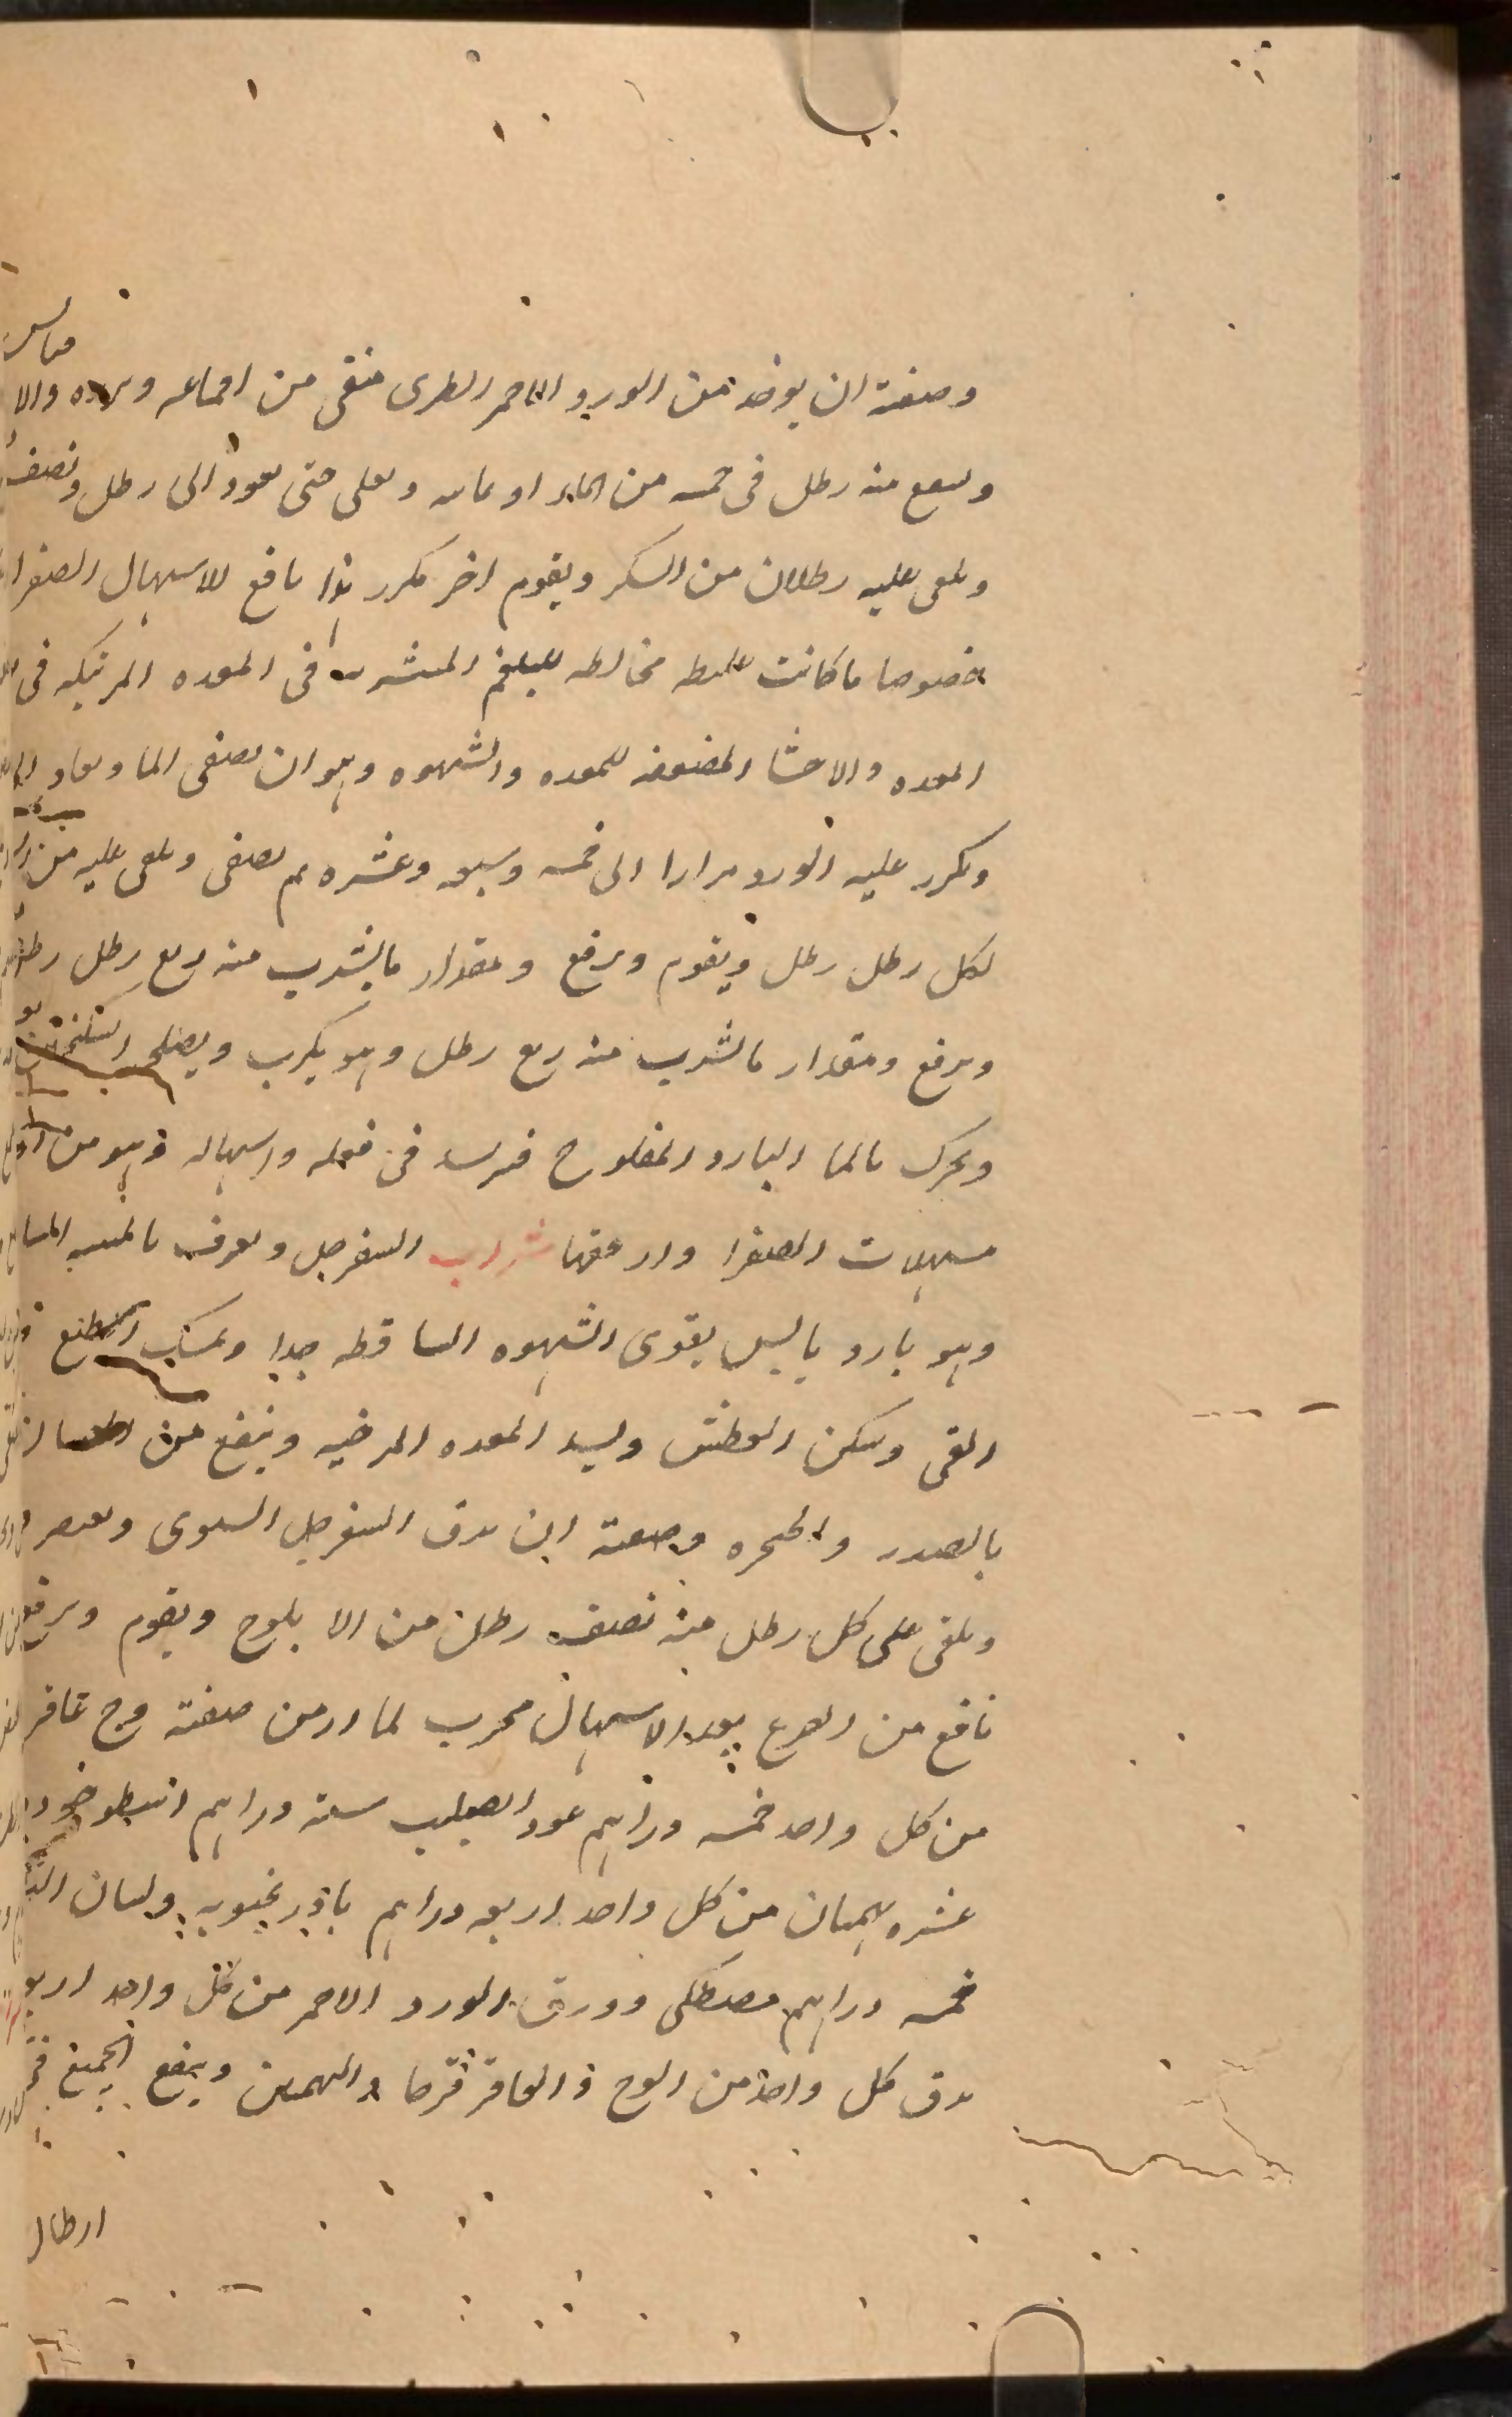 وصفته ان يوخذ من الورد الاحمر الطرى منقى من اقماعه وبزره والا
وينقع منه رطل فى خمسه من الماء او ثمانيه ويغلى حتى يعود الى رطل ونصف
ويلقى عليه رطلان من السكر ويقوم اخر مكرر هذا نافع للاسهال الصفرا
خصوصا ما كانت غليظه مخالطه للبلغم المتشربه فى المعده المرتبكه فى
المعده والاحشا المضعفه للمعده والشهوه وهو ان يصفى الما ويعاد
ويكرر عليه الورد مرارا الى خمسه وسبعه وعشره ثم يصفى ويلقى عليه من
لكل رطل رطل ويقوم ويرفع ومقدار ما يشرب منه ربع رطل
ويرفع ومقدار ما يشرب منه ربع رطل وهو يكرب ويصلحه
ويحرك بالما البارد المثلوج فيزيد فى فعله واسهاله وهو من
مسهلات الصفرا وارفقها شراب السفرجل ويعرف بالميبه
وهو بارد يابس يقوى الشهوه الساقطه جدا ويمسك الطبع
القى ويسكن العطش ويشد المعده المرخيه وينفع من
بالصدر والحنجره وصفته ان يدق السفرجل ويعصر
ويلقى على كل رطل منه نصف رطل من الابلوج ويقوم ويرفع
نافع من الصرع بعد الاسهال مجرب لما ازمن صفته وج عاقر
من كل واحد خمسه دراهم عود الصليب سته دراهم اسطوخودس
عشره بهمنان من كل واحد اربعه دراهم باذرنجبويه ولسان
خمسه دراهم مصطكى وورق الورد الاحمر من كل واحد اربعه
يدق كل واحد من الوج والعاقرقرحا والبهمنين وينقع الجميع فى
ارطال